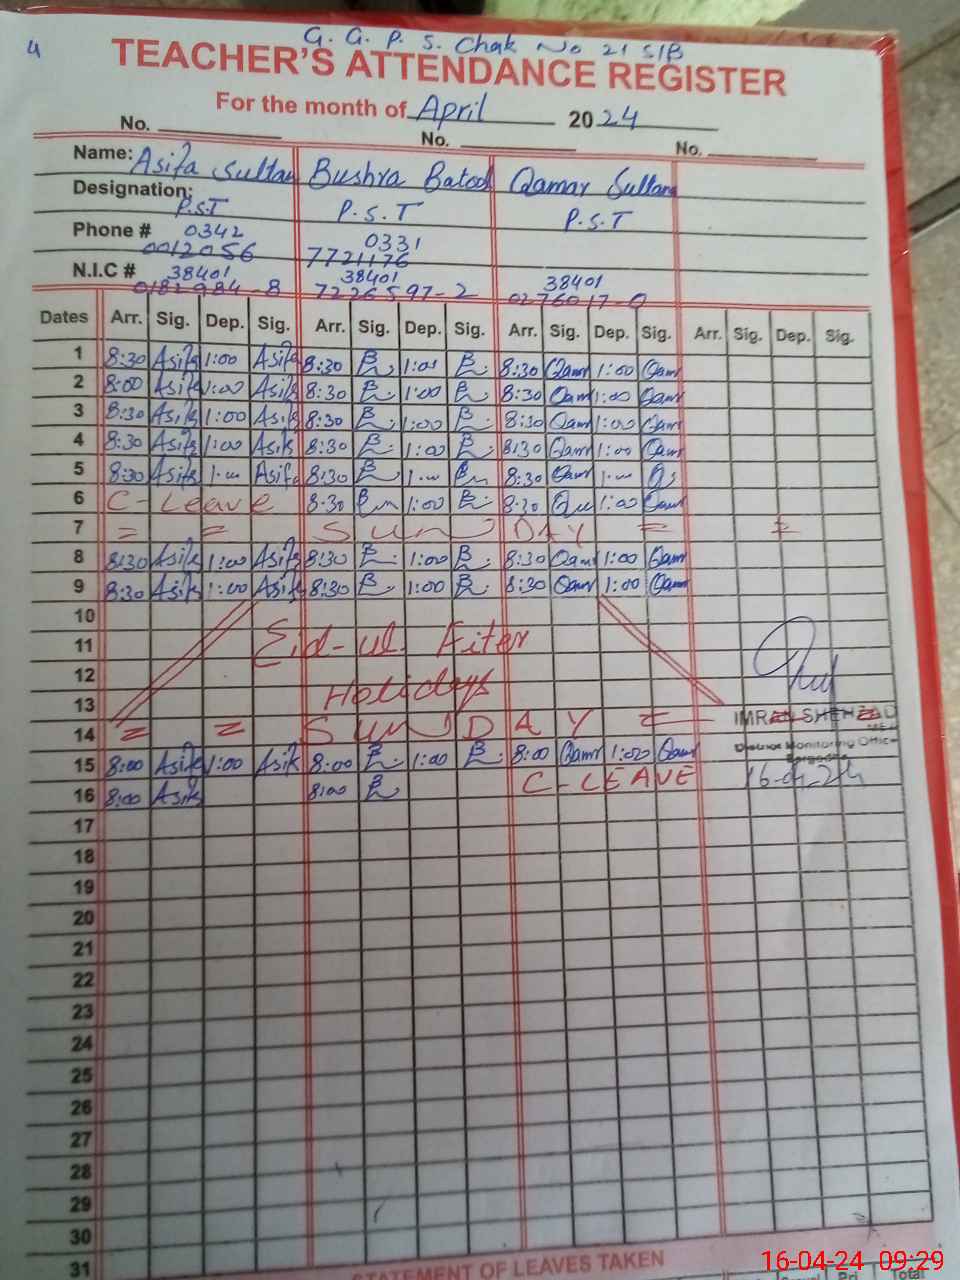 4
G. G. P. S. Chak No 21 S/B
TEACHER'S ATTENDANCE REGISTER
For the month of April 2024
No. No. No.
Name: Asifa Sultan Bushra Batool Qamar Sultana
Designation: P.S.T P.S.T P.S.T
Phone # 0342 0331
0012056 7721176
N.I.C # 38401 38401 38401
0182984-8 7226597-2 0276017-0
Dates Arr. Sig. Dep. Sig. Arr. Sig. Dep. Sig. Arr. Sig. Dep. Sig. Arr. Sig. Dep. Sig.
1 8:30 Asifa 1:00 Asifa 8:30 B 1:00 B 8:30 Qamr 1:00 Qamr
2 8:00 Asifa 1:00 Asifa 8:30 B 1:00 B 8:30 Qamr 1:00 Qamr
3 8:30 Asifa 1:00 Asifa 8:30 B 1:00 B 8:30 Qamr 1:00 Qamr
4 8:30 Asifa 1:00 Asifa 8:30 B 1:00 B 8:30 Qamr 1:00 Qamr
5 8:30 Asifa 1:00 Asifa 8:30 B 1:00 B 8:30 Qamr 1:00
6 C-Leave 8:30 B 1:00 B 8:30 1:00 Qamr
7 = = SUNDAY = =
8 8:30 Asifa 1:00 Asifa 8:30 B 1:00 B 8:30 Qamr 1:00 Qamr
9 8:30 Asifa 1:00 Asifa 8:30 B 1:00 B 8:30 Qamr 1:00 Qamr
10
11 Eid-ul-Fiter
12
13 Holidays
14 = = SUNDAY =
IMRAN SHEHZAD
MEA
District Monitoring Office
15 8:00 Asifa 1:00 Asifa 8:00 B 1:00 B 8:00 Qamr 1:00 Qamr
16 8:00 Asifa 8:00 B C-LEAVE 16-04-24
17
18
19
20
21
22
23
24
25
26
27
28
29
30
31
STATEMENT OF LEAVES TAKEN
Total
16-04-24 09:29